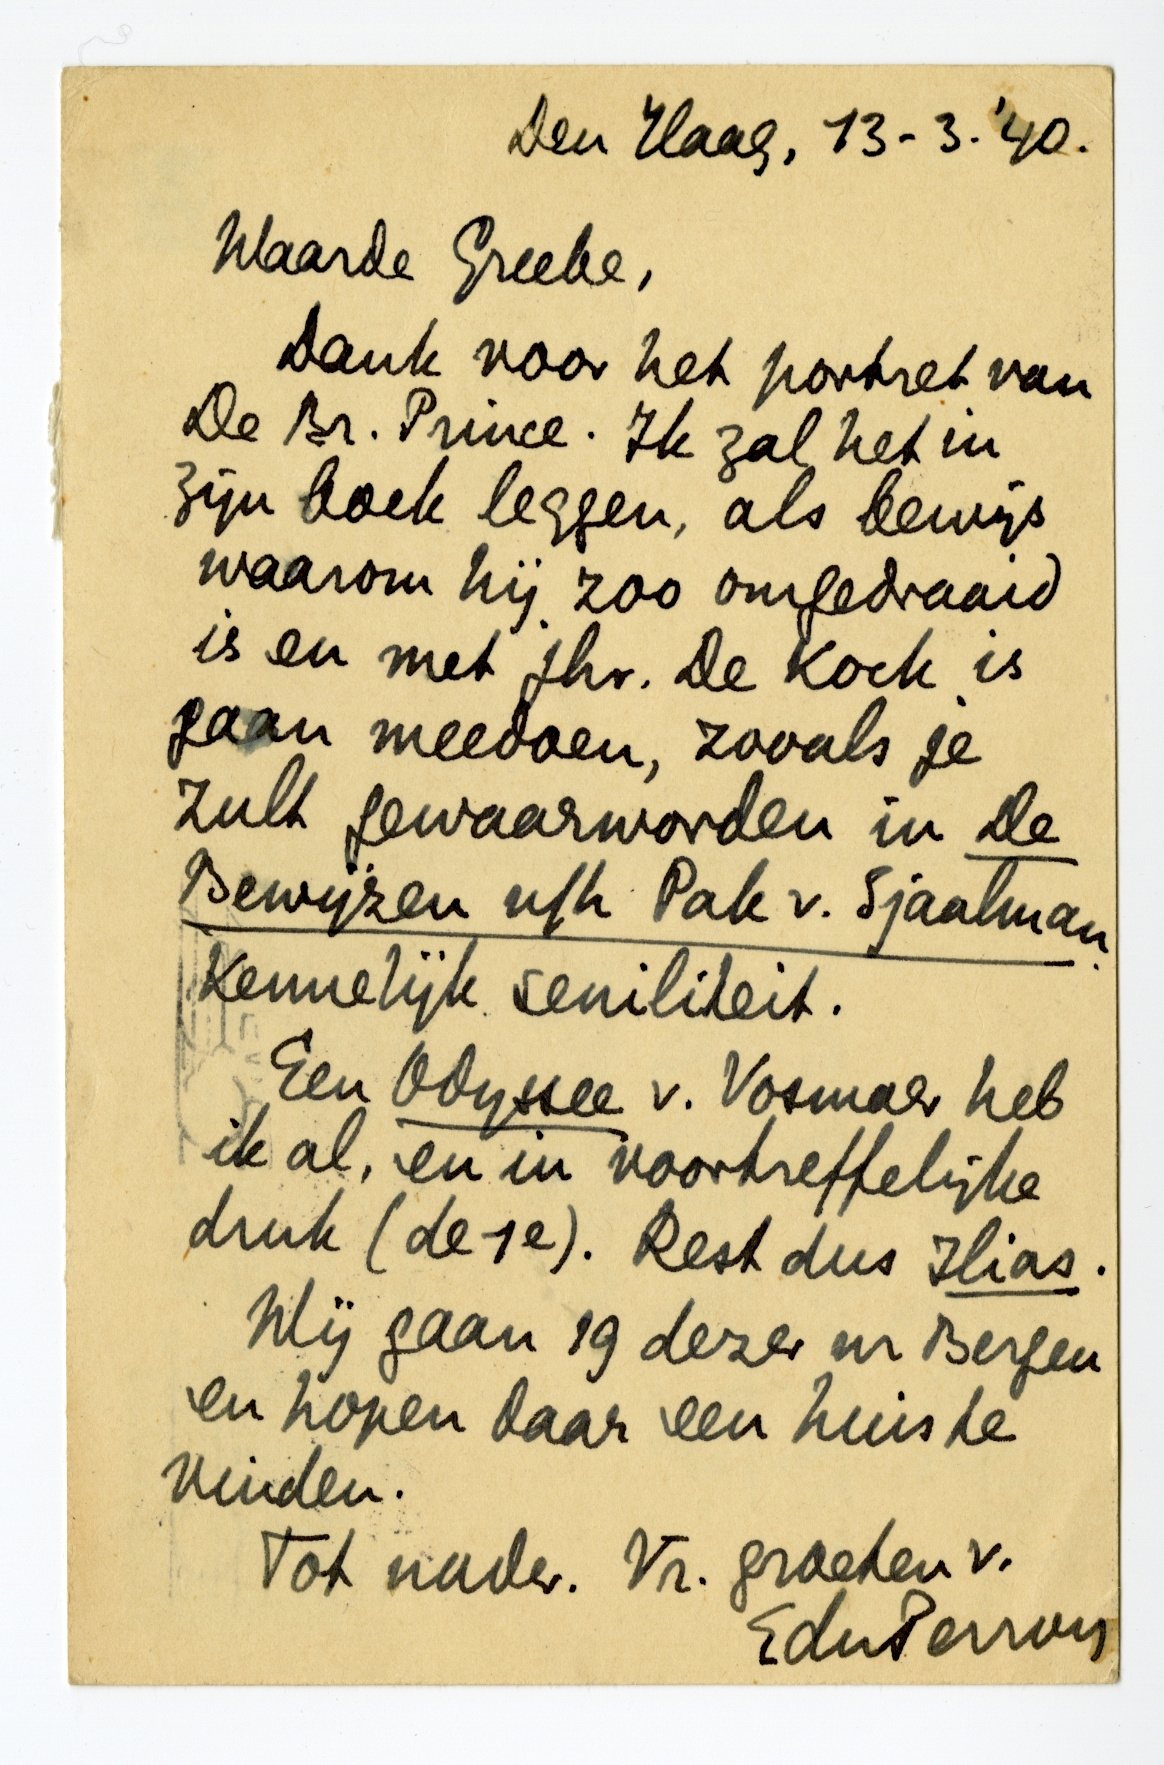 Den Haag, 13-3-'40.
Waarde Greebe,
Dank voor het portret van
De Br. Prince. Ik zal het in
zijn boek leggen, als bewijs
waarom hij zoo omgedraaid
is en met jhr. De Kock is
gaan meedoen, zooals je
zult gewaarworden in De
Bewijzen u/h Pak v. Sjaalman.
Kennelijk seniliteit.
Een Odyssee v. Vosmaer heb
ik al, en in voortreffelijke
druk (de 1e). Rest dus Ilias.
Wij gaan 19 dezer nr Bergen
en hopen daar een huis te
vinden.
Tot nader. Vr. groeten v.
EduPerron